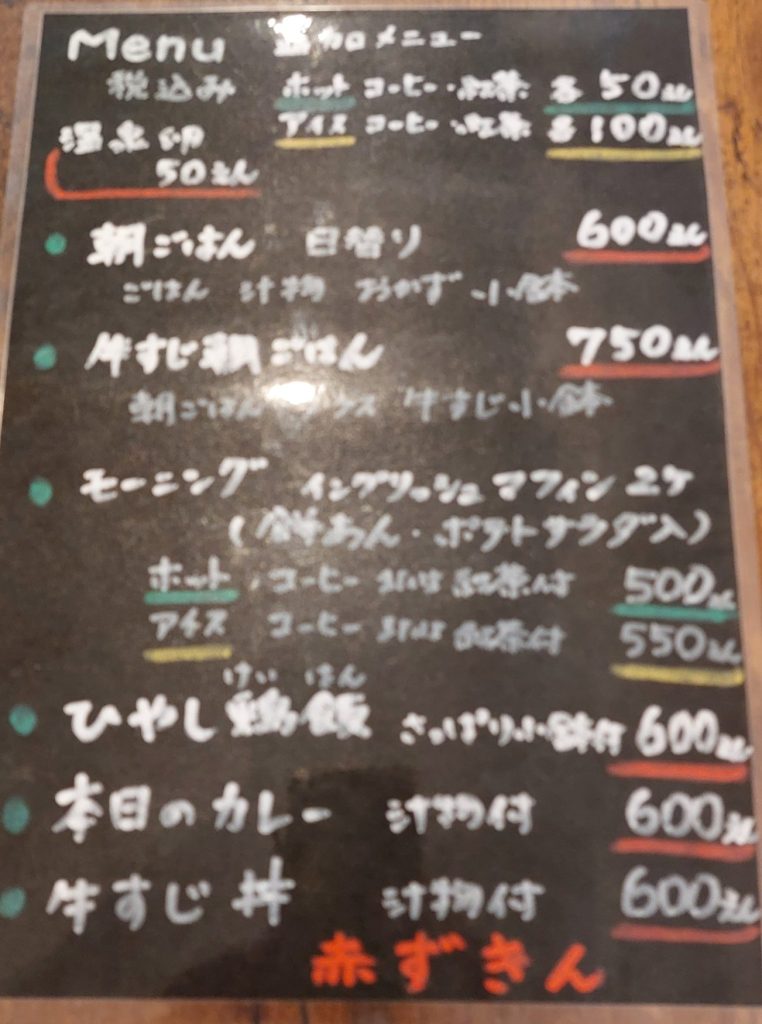 Menu 追加メニュー
税込み ホット コーヒー・紅茶 各50えん
アイス コーヒー・紅茶 各100えん
温泉卵
50えん
朝ごはん 日替り 600えん
ごはん 汁物 おかず 小鉢
牛すじ朝ごはん 750えん
朝ごはん プラス 牛すじ小鉢
モーニング イングリッシュマフィン 2ケ
(餅あん・ポテトサラダ入)
ホット コーヒー または 紅茶付 500えん
アイス コーヒー または 紅茶付 550えん
けい はん
ひやし鶏飯 さっぱり小鉢付 600えん
本日のカレー 汁物付 600えん
牛すじ丼 汁物付 600えん
赤ずきん